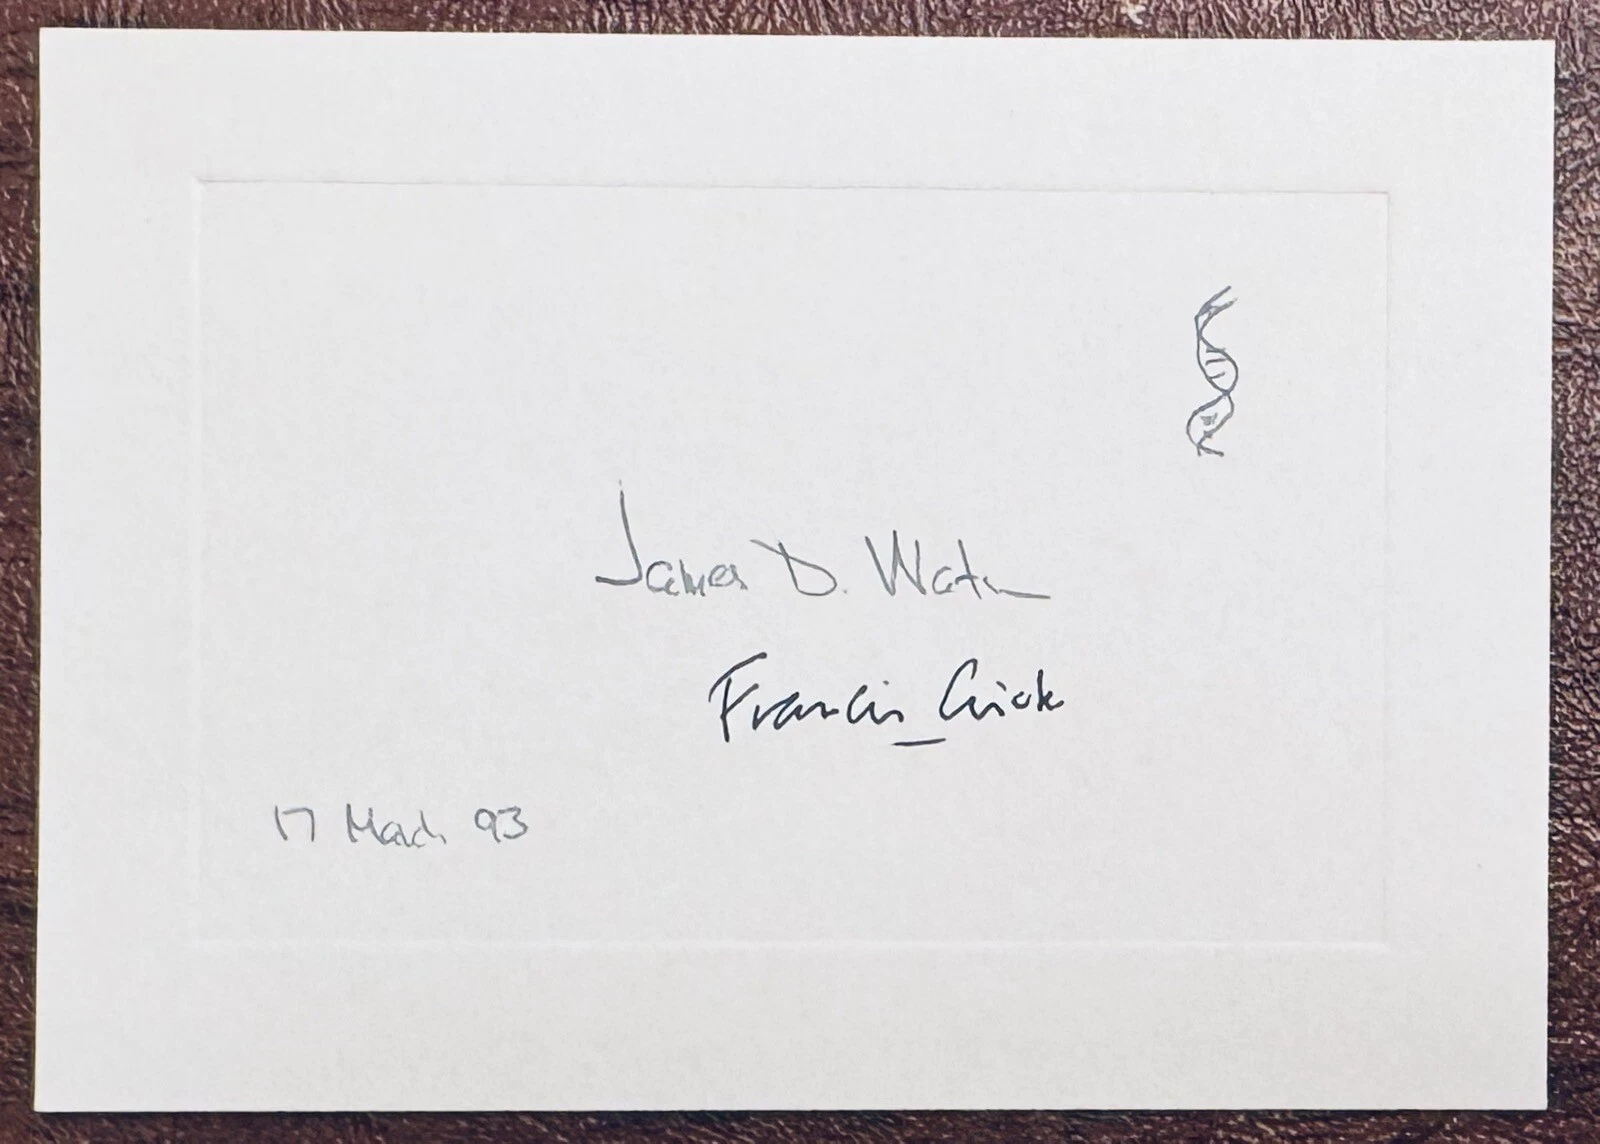 James D. Watson
Francis Crick
17 March 93